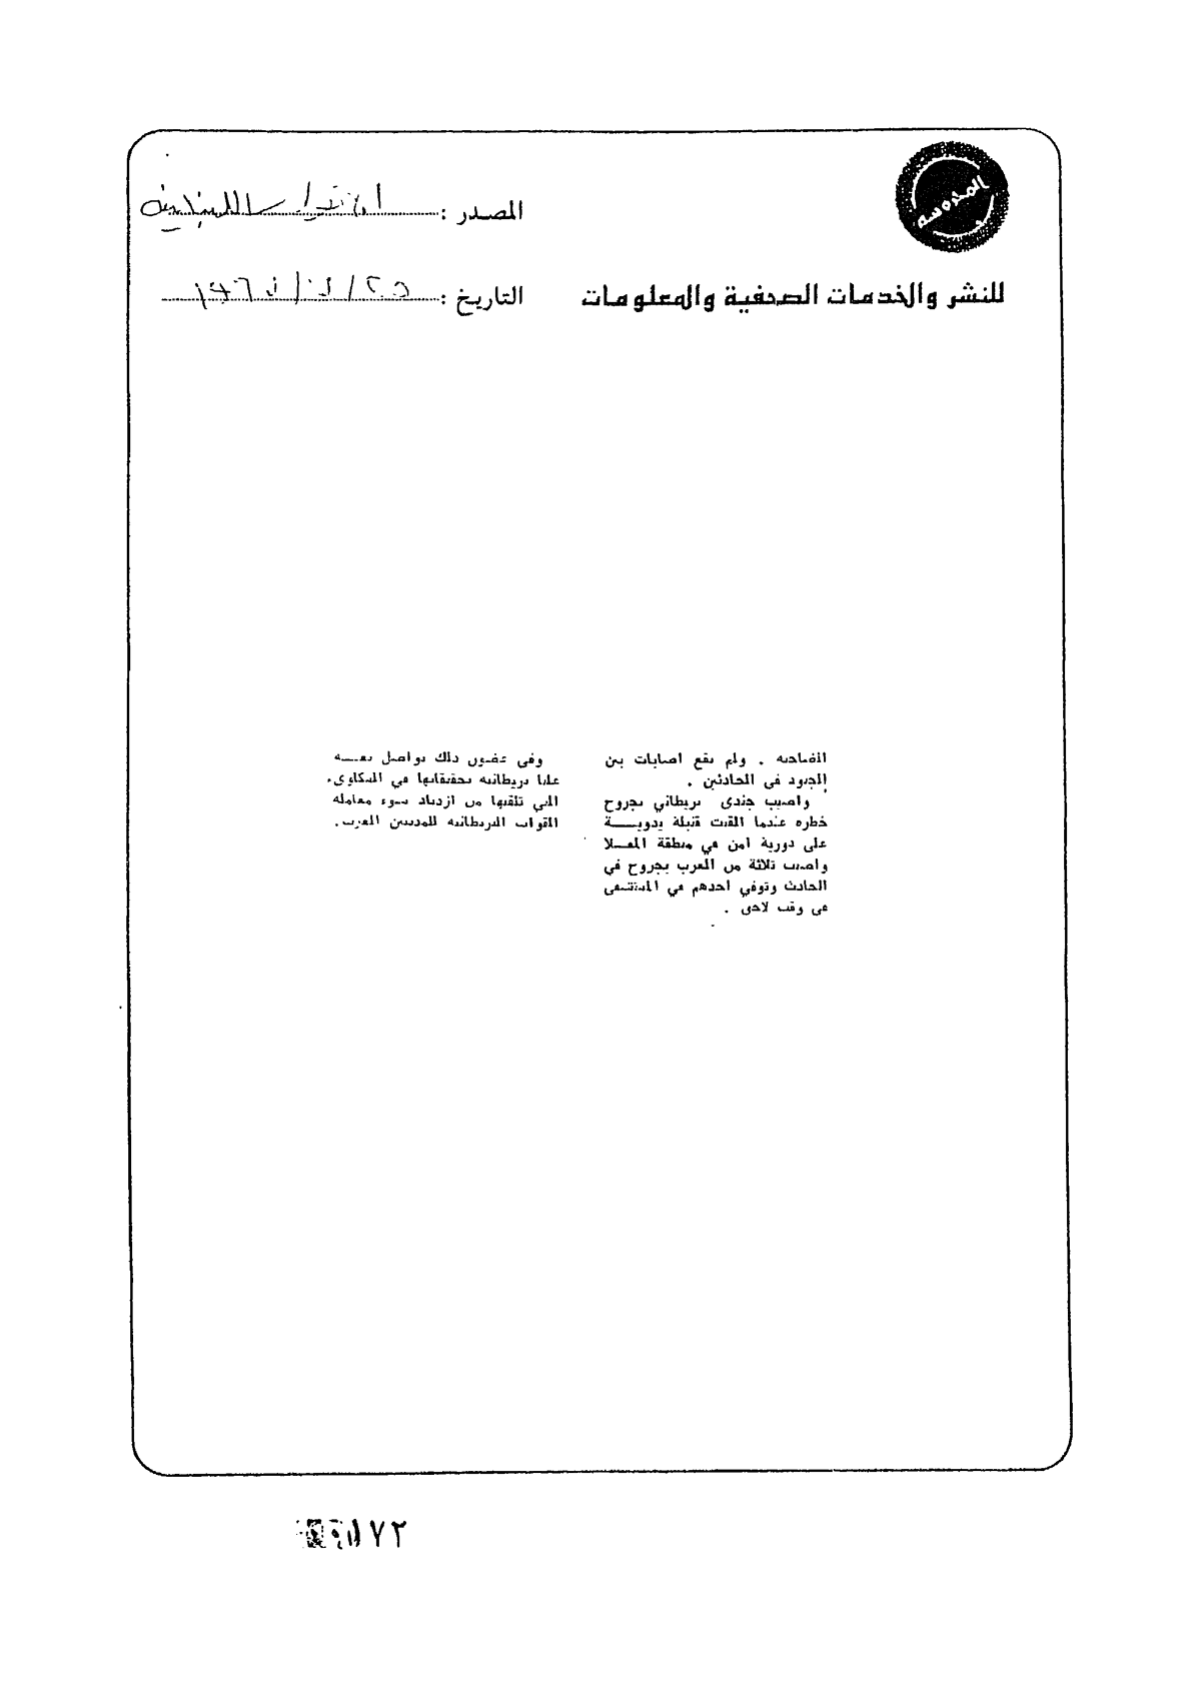 المصدر : اللبنانية
للنشر والخدمات الصحفية والمعلومات
التاريخ :
الضاحية . ولم تقع اصابات بين
الجنود في الحادثين .
واصيب جندى بريطاني بجروح
خطره عندما القيت قنبلة يدويـــة
على دورية امن في منطقة المعـلا
واصيب ثلاثة من العرب بجروح في
الحادث وتوفي احدهم في المستشفى
في وقت لاحق .
وفي غضون ذلك تواصل بعـثه
عليا بريطانيه تحقيقاتها في الشكاوى.
التي تلقتها من ازدياد سوء معامله
القوات البريطانيه للمدنيين العرب.